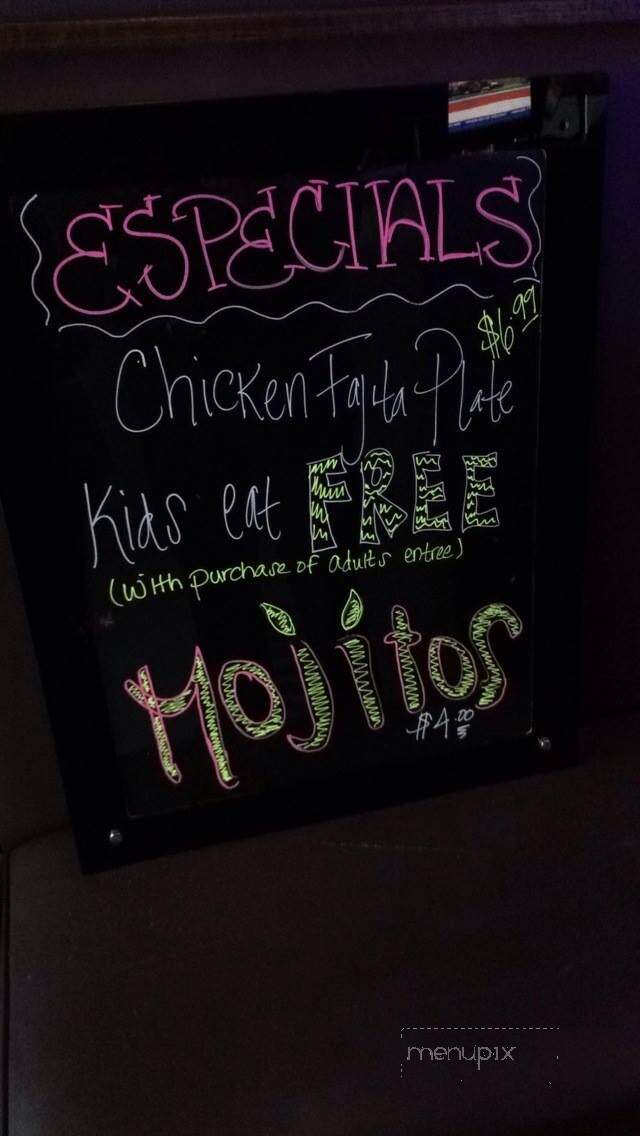 ESPECIALS
$6.99
Chicken Fajita Plate
Kids eat FREE
(with purchase of adults entree)
Mojitos
$4.00
menupix